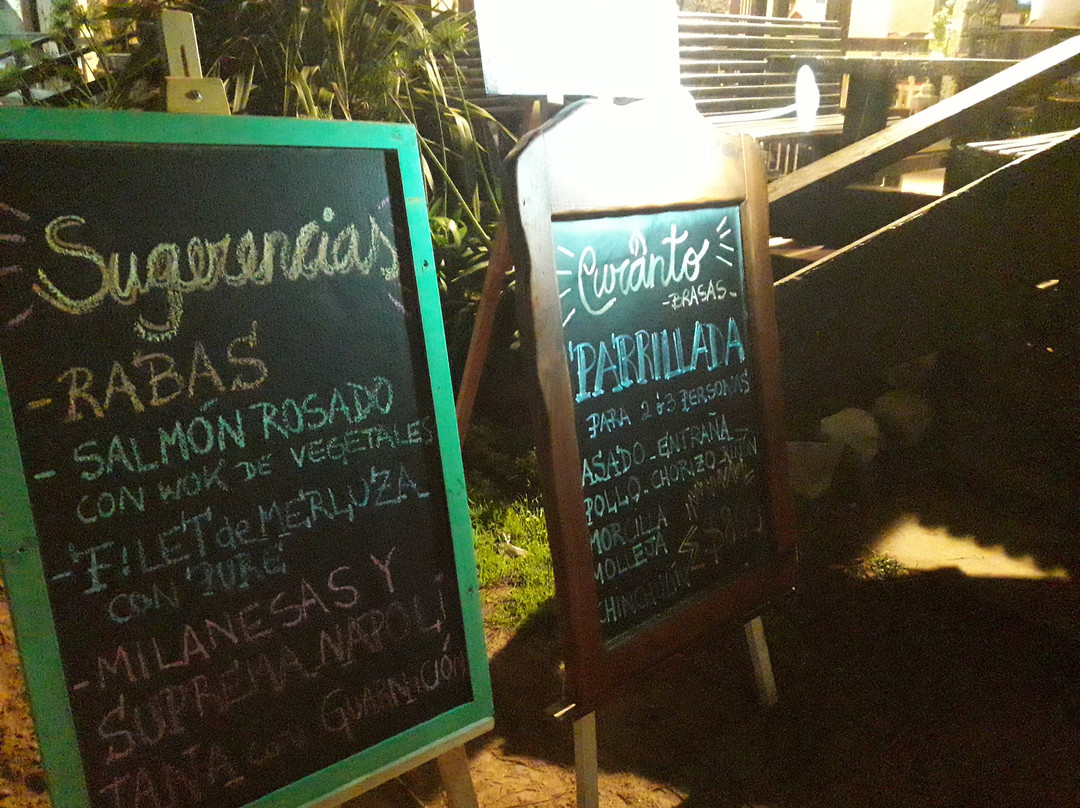 Sugerencias
- RABAS
- SALMÓN ROSADO
CON WOK DE VEGETALES
- FILET de MERLUZA
CON PURÉ
- MILANESAS Y
SUPREMA NAPOLI
TANA con GUARNICIÓN
Curanto
- BRASAS -
PARRILLADA
PARA 2 ó 3 PERSONAS
ASADO - ENTRAÑA -
POLLO - CHORIZO - RIÑÓN
MORCILLA
MOLLEJA
CHINCHULÍN